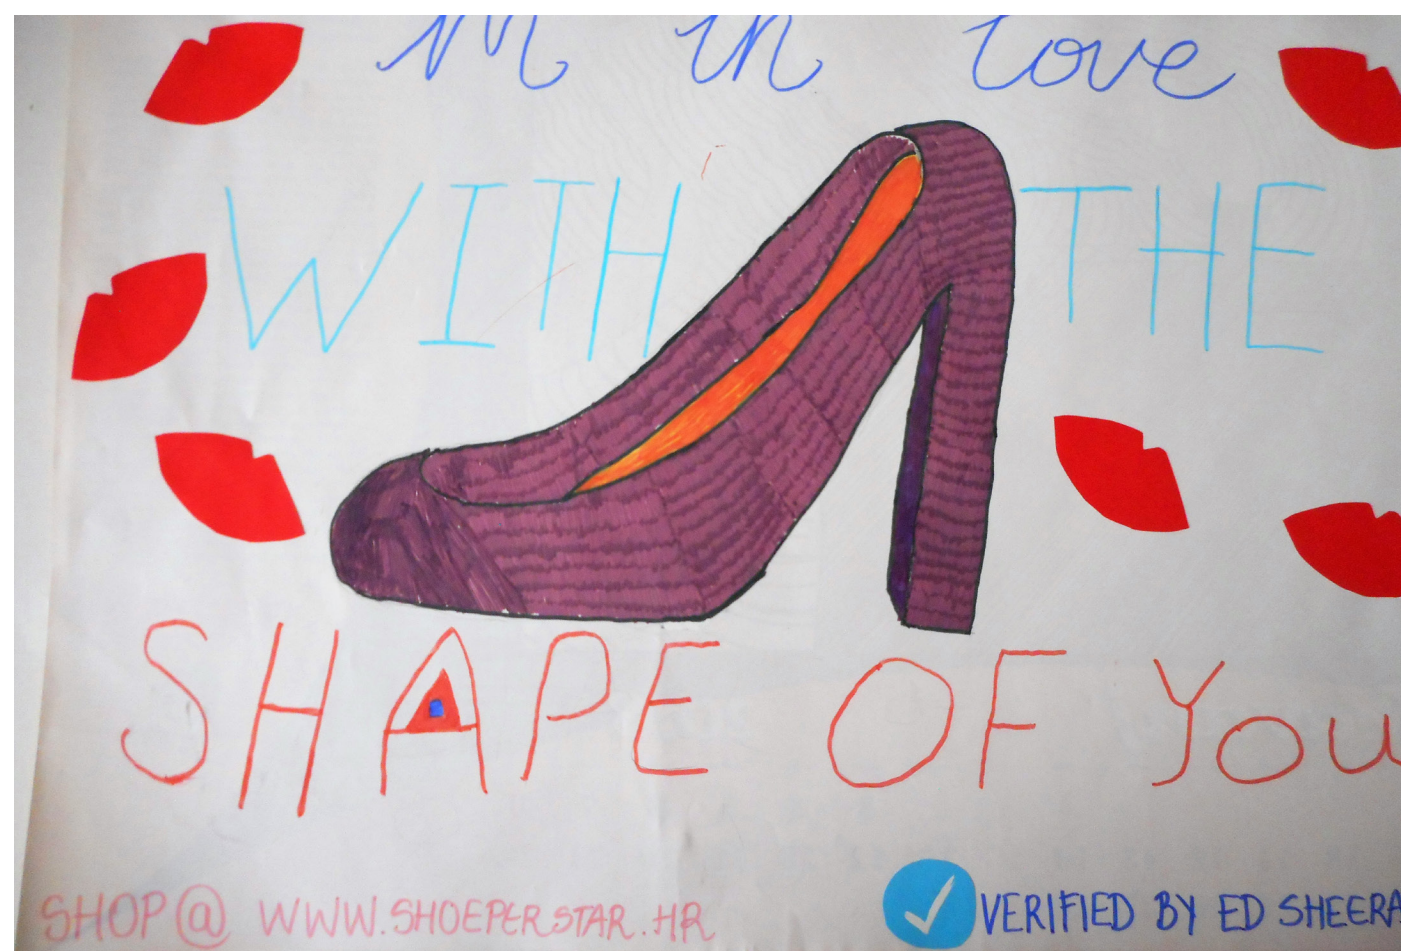 m in love
WITH THE
SHAPE OF You
SHOP@ WWW.SHOEPERSTAR.HR
VERIFIED BY ED SHEERA